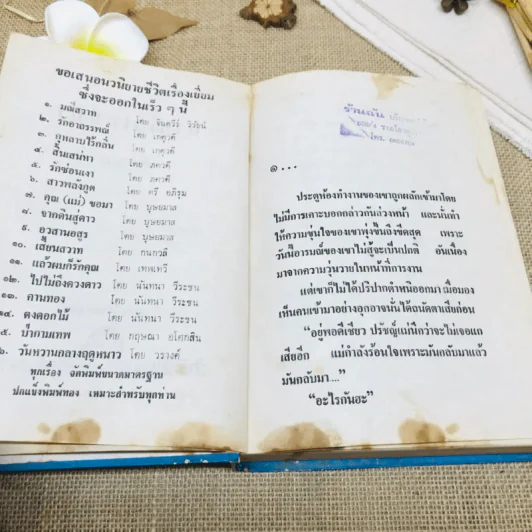 ขอเสนอนวนิยายชีวิตเรื่องเยี่ยม
ซึ่งจะออกในเร็ว ๆ นี้
๑. มณีสวาท โดย จินตวีร์ วิวัธน์
๒. รักอาถรรพณ์ โดย เกตุวดี
๓. กุหลาบไร้กลิ่น โดย เกตุวดี
๔. สิ้นเสน่หา โดย ภควดี
๕. รักซ่อนเงา โดย ภควดี
๖. สาวพลังกูด โดย ตรี อภิรุม
๗. คุณ (แม่) ขอมา โดย บุษยมาส
๘. จากดินสู่ดาว โดย บุษยมาส
๙. อวสานอสูร โดย บุษยมาส
๑๐. เสี้ยนสวาท โดย กนกวลี
๑๑. แล้วผมก็รักคุณ โดย เทพเทวี
๑๒. ไปไม่ถึงดวงดาว โดย นันทนา วีระชน
๑๓. คานทอง โดย นันทนา วีระชน
๑๔. ดงดอกไม้ โดย นันทนา วีระชน
๕. ป่ากามเทพ โดย กฤษณา อโศกสิน
๖. วันหวานกลางฤดูหนาว โดย วราวค์
ทุกเรื่อง จัดพิมพ์ขนาดมาตรฐาน
ปกแข็งพิมพ์ทอง เหมาะสำหรับทุกท่าน
๑...
ประตูห้องทำงานของเขาถูกผลักเข้ามาโดย
ไม่มีการเคาะบอกกล่าวกันล่วงหน้า และนั่นทำ
ให้ความขุ่นใจของเขาพุ่งขึ้นถึงขีดสุด เพราะ
วันนี้อารมณ์ของเขาไม่สู้จะเป็นปกติ อันเนื่อง
มาจากความวุ่นวายในหน้าที่การงาน
แต่เขาก็ไม่ได้ปริปากตำหนิออกมา เมื่อมอง
เห็นคนเข้ามาอย่างอุกอาจนั่นได้ถนัดตาเสียก่อน
“อยู่พอดีเชียว ปรัชญ์แม่นึกว่าจะไม่เจอแก
เสียอีก แม่กำลังร้อนใจเพราะมันกลับมาแล้ว
มันกลับมา...”
“อะไรกันฮะ”